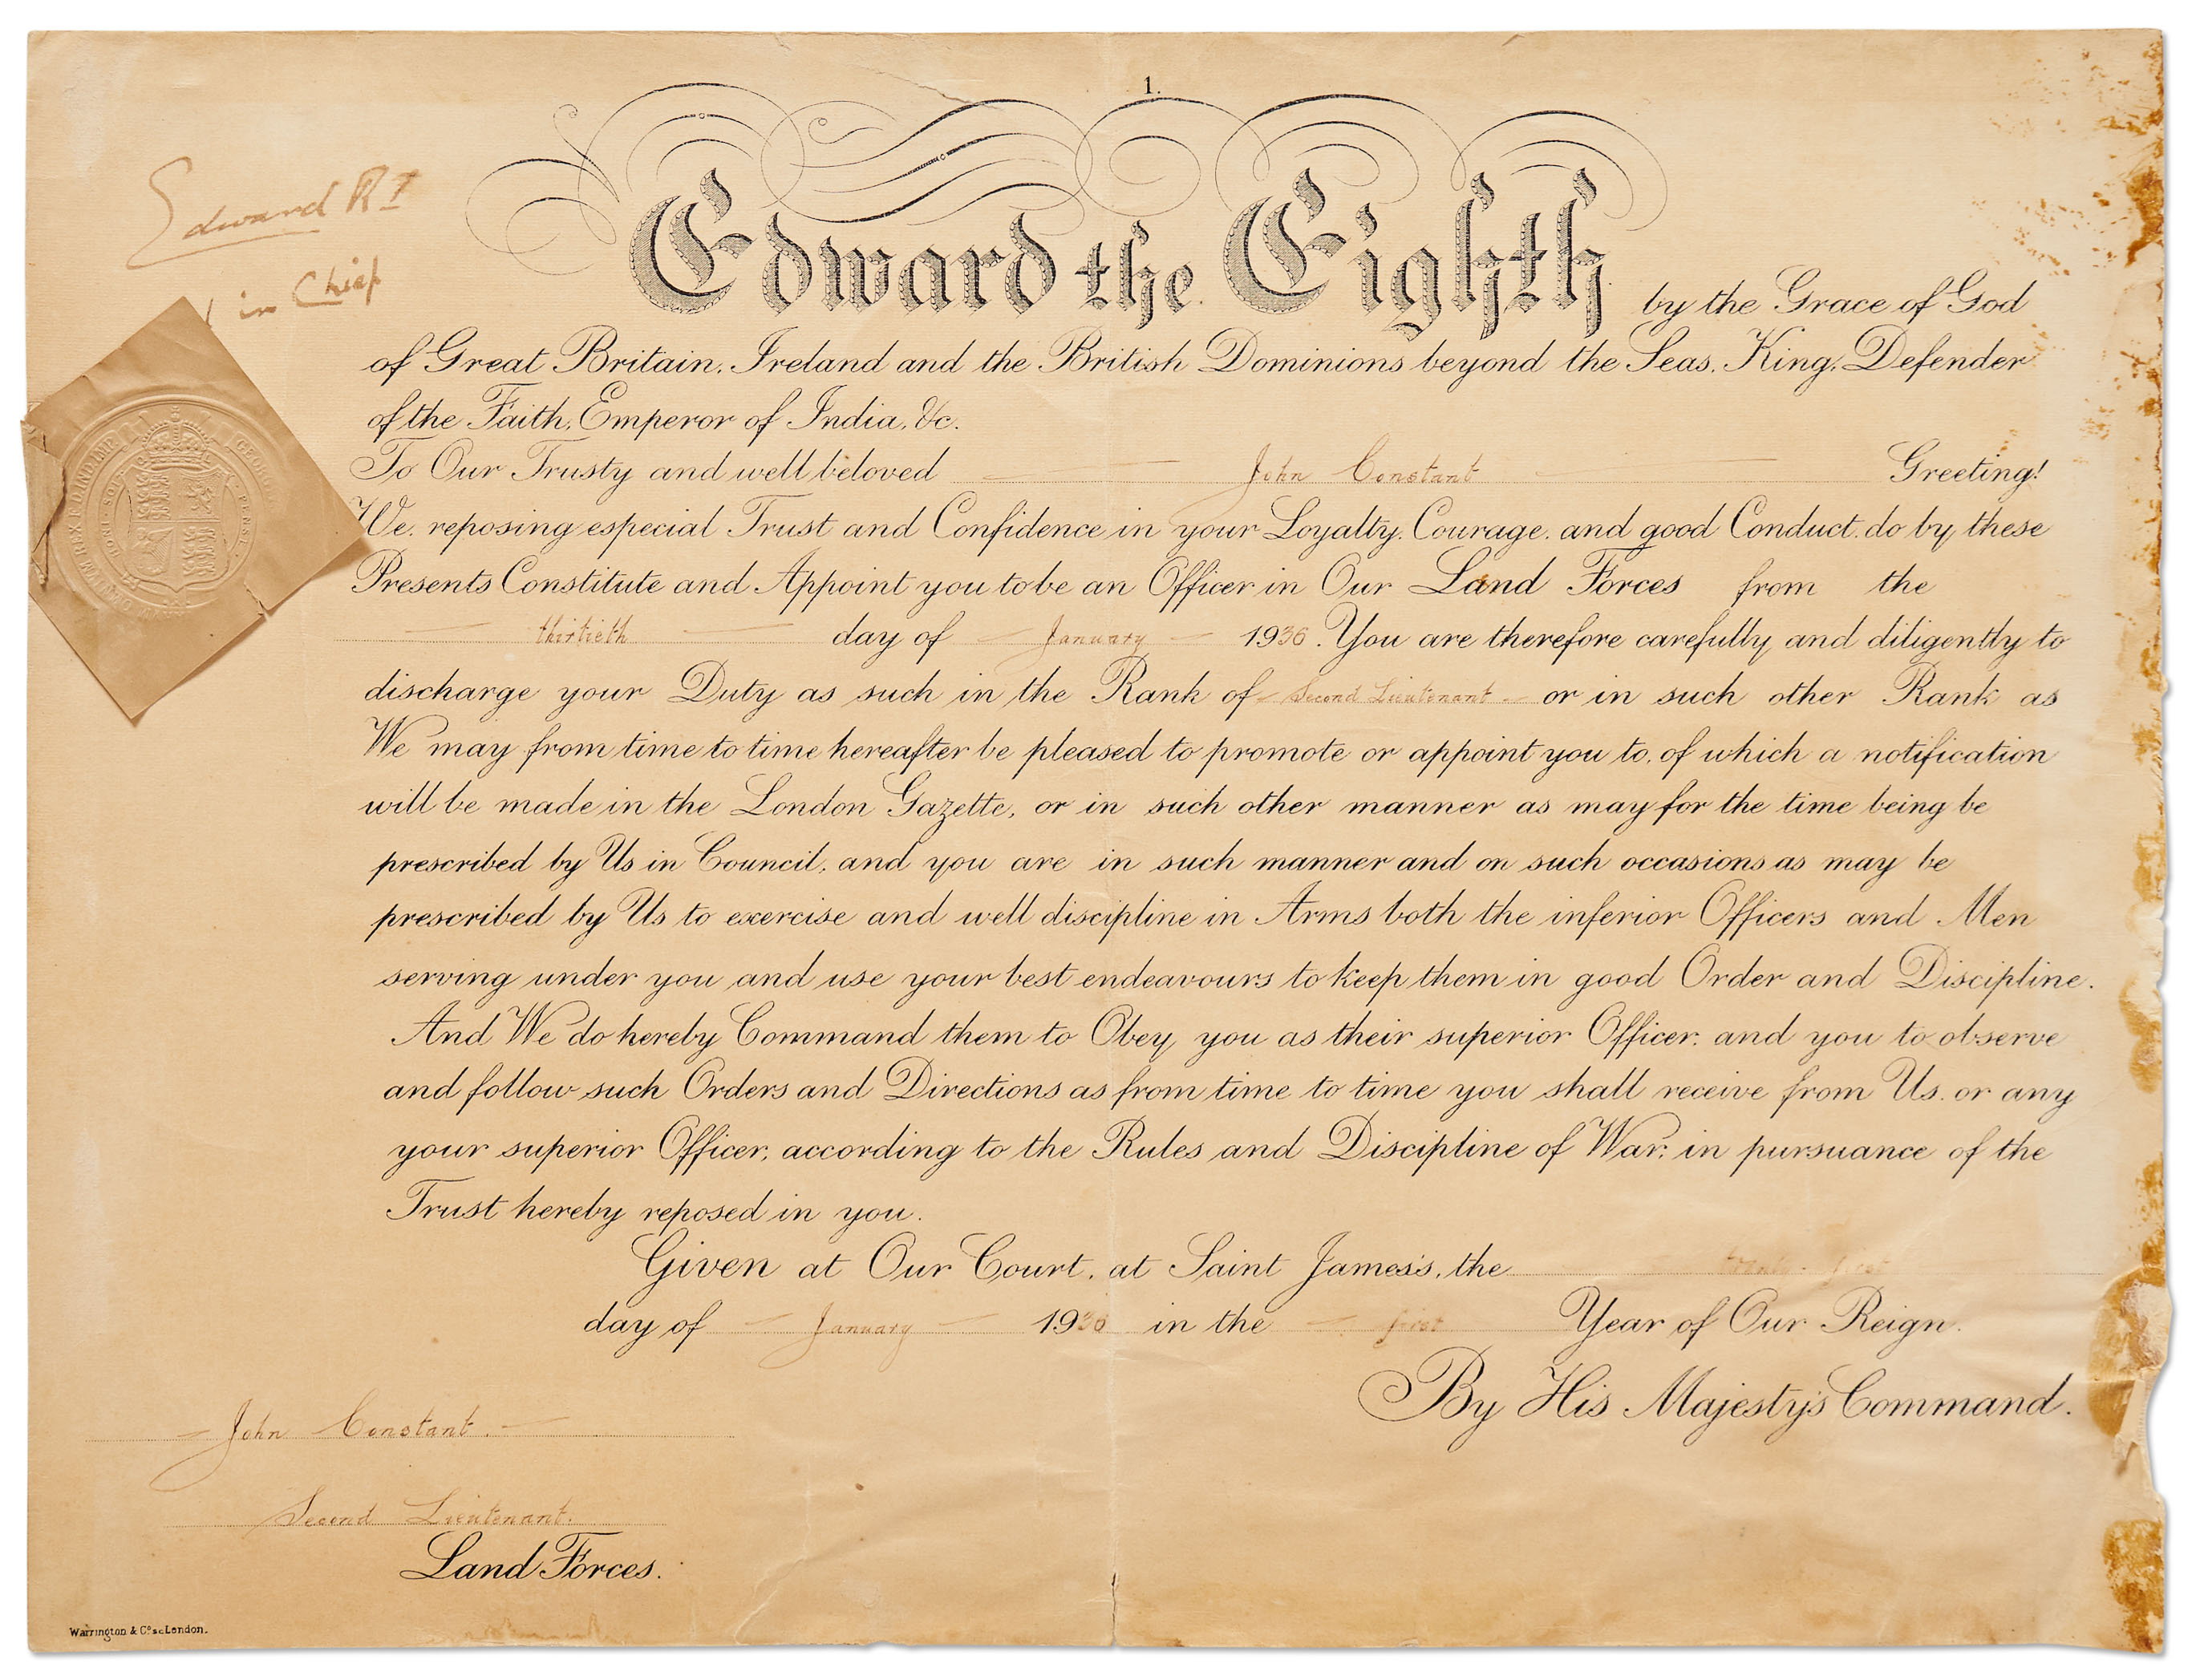 1.
Edward RI
in Chief
Edward the Eighth by the Grace of God
of Great Britain, Ireland and the British Dominions beyond the Seas, King, Defender
of the Faith, Emperor of India, &c.
To Our Trusty and well beloved John Constant Greeting!
We, reposing especial Trust and Confidence in your Loyalty, Courage, and good Conduct, do by these
Presents Constitute and Appoint you to be an Officer in Our Land Forces from the
thirtieth day of January 1936. You are therefore carefully and diligently to
discharge your Duty as such in the Rank of Second Lieutenant or in such other Rank as
We may from time to time hereafter be pleased to promote or appoint you to, of which a notification
will be made in the London Gazette, or in such other manner as may for the time being be
prescribed by Us in Council, and you are in such manner and on such occasions as may be
prescribed by Us to exercise and well discipline in Arms both the inferior Officers and Men
serving under you and use your best endeavours to keep them in good Order and Discipline.
And We do hereby Command them to Obey you as their superior Officer, and you to observe
and follow such Orders and Directions as from time to time you shall receive from Us, or any
your superior Officer, according to the Rules and Discipline of War, in pursuance of the
Trust hereby reposed in you.
Given at Our Court, at Saint James's, the twenty-first
day of January 1936 in the first Year of Our Reign.
By His Majesty's Command.
John Constant.
Second Lieutenant.
Land Forces.
Warrington & Co. sc London.